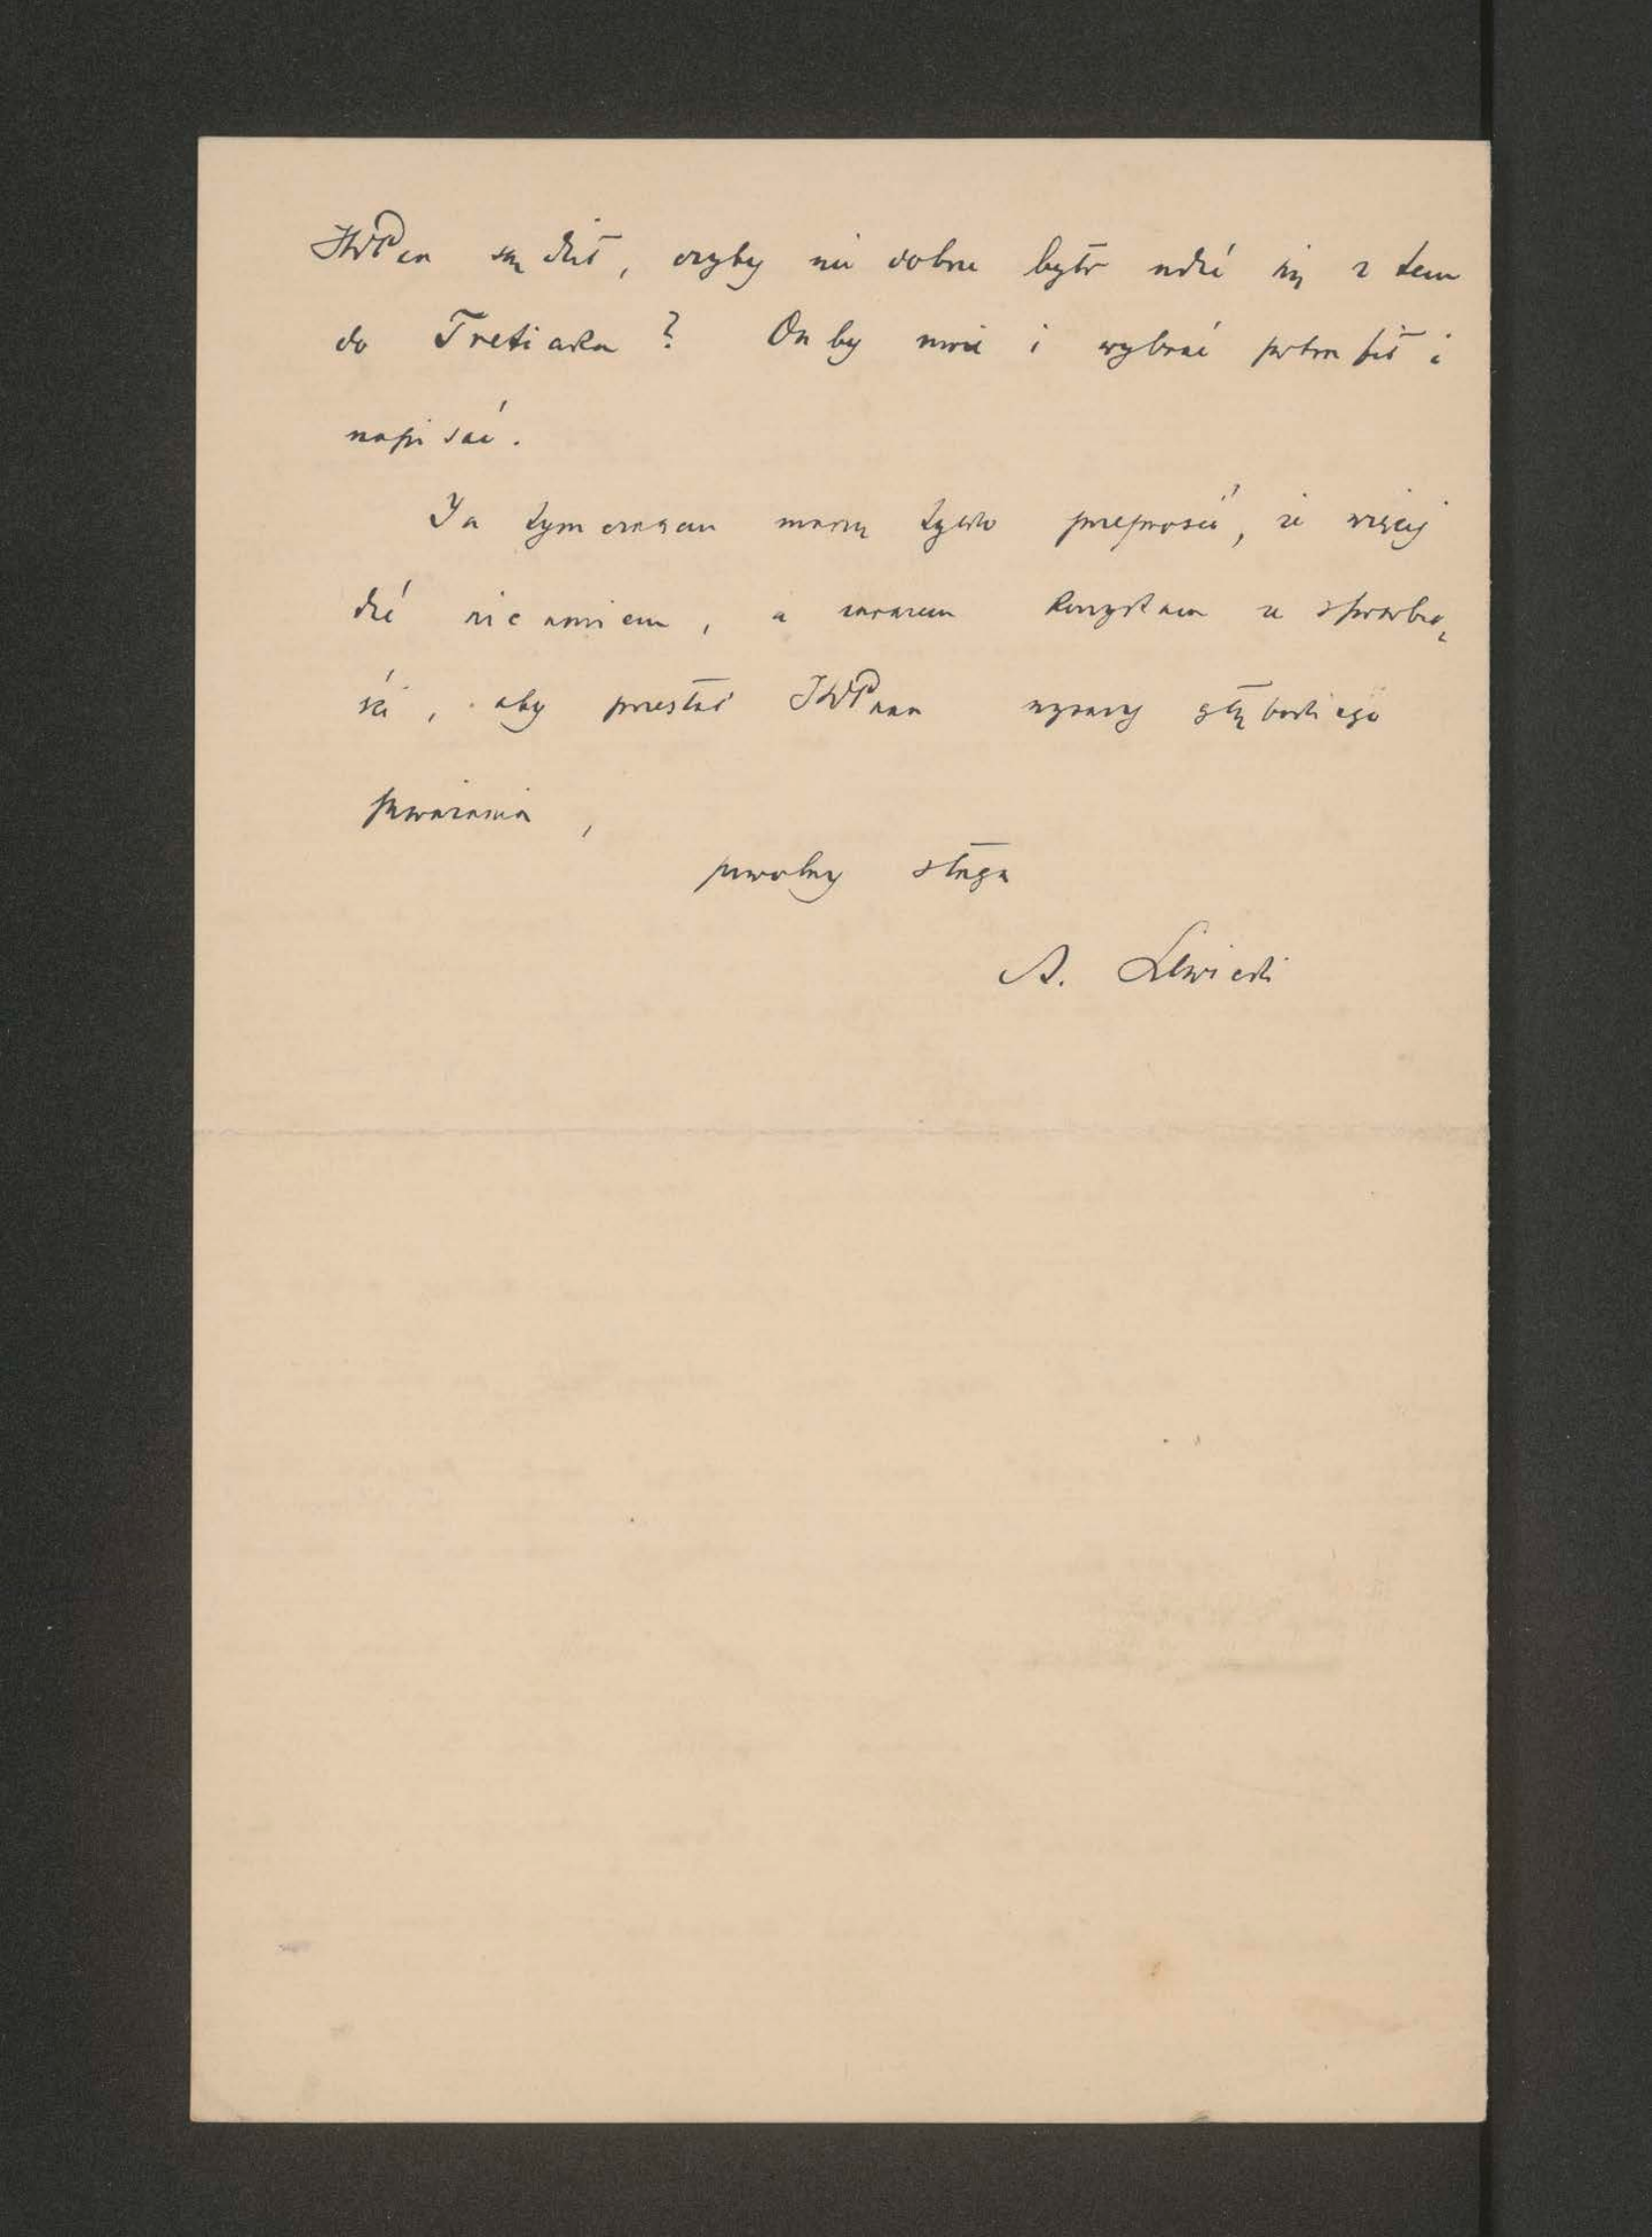 JWPan sądził, czyby nie dobrze było udać się z tem
do Tretiaka? On by może i wybrać potrafił i
napisać.
Ja tymczasem muszę tylko przeprosić, że więcej
dać nie umiem, a zarazem korzystam ze sposobno
ści, aby przesłać JWPanu wyrazy głębokiego
poważania,
powolny sługa
A. Lewicki